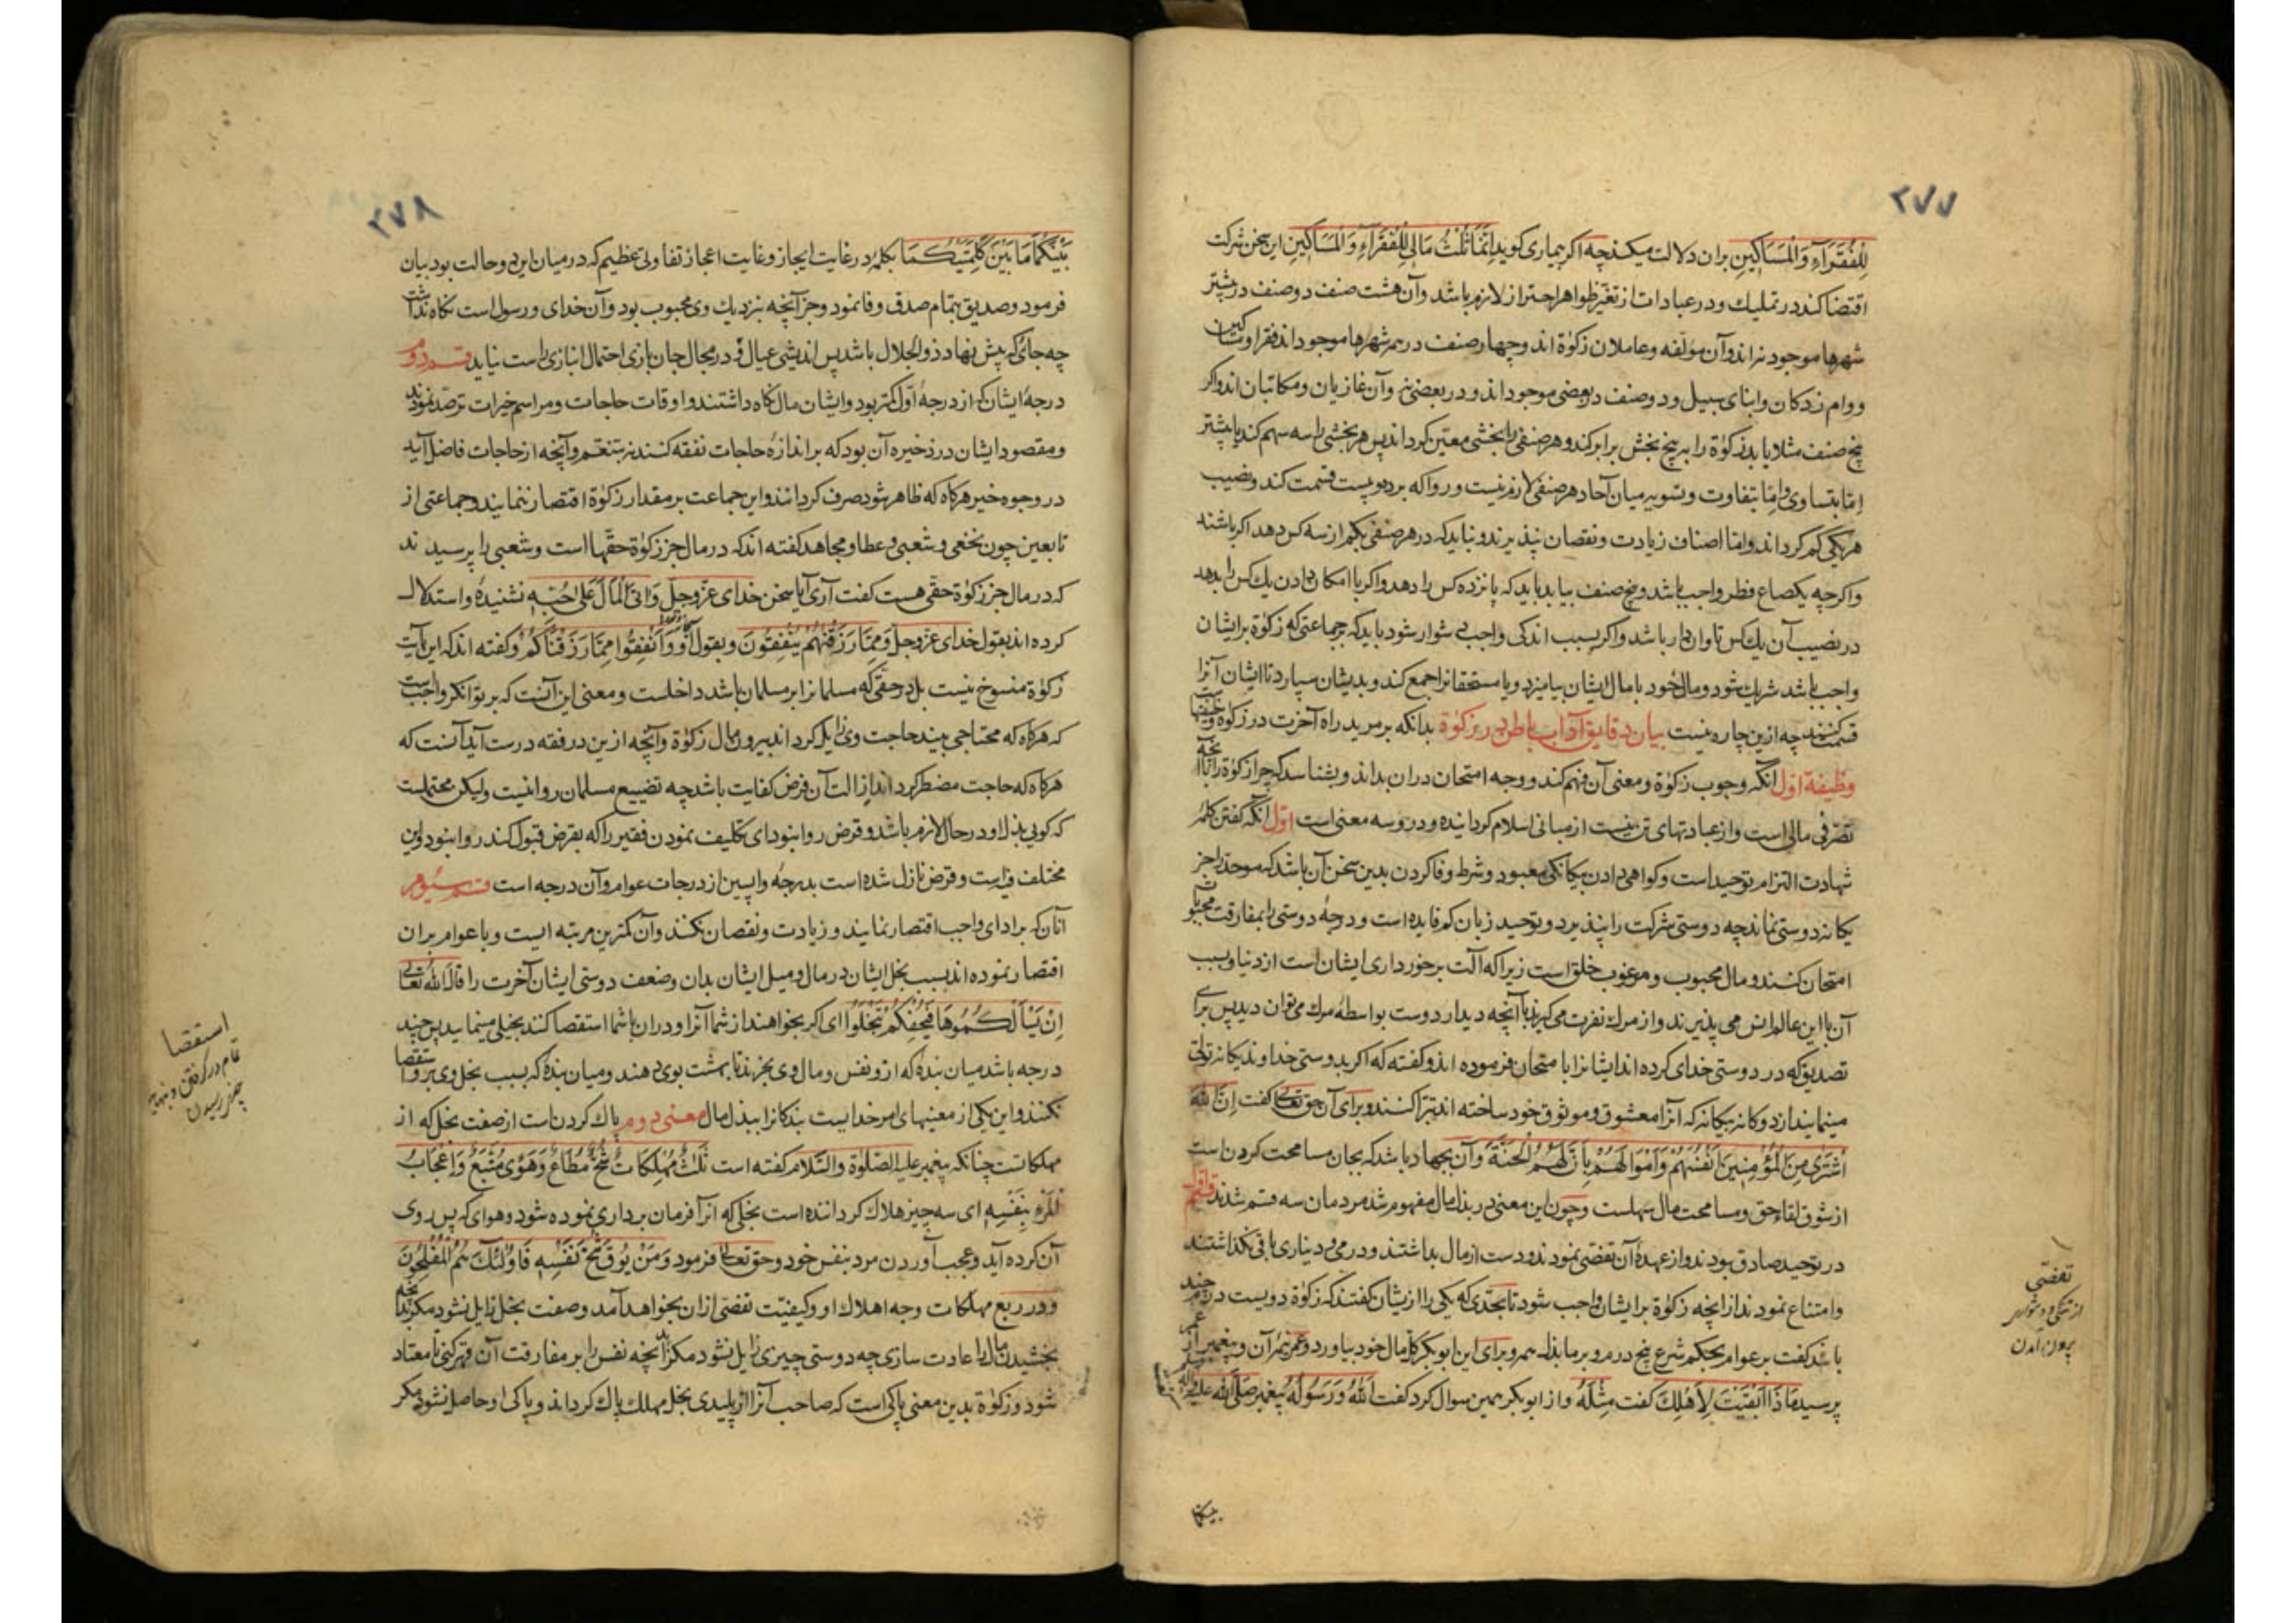 ٢٧٧
لِلْفُقَرَآءِ وَالْمَسَاكِينِ بران دلالت میکند چه اکر بیماری کوید اِنَّمَا ثُلْثُ مَالِی لِلْفُقَرَآءِ وَالْمَسَاكِينِ این سخن شرکت
اقتضا کند در تملیك و در عبادات از تغیّر ظواهر احتراز لازم باشد و آن هشت صنف دو صنف در بیشتر
شهرها موجود نه اند و آن مولّفه و عاملان زکوٰة اند و چهار صنف در همه شهرها موجود اند فقرا و مساکین
و وام زدکان و ابنای سبیل و دو صنف در بعضی موجود اند و در بعضی نی و آن غازیان و مکاتبان اند و اکر
پنج صنف مثلا یابد زکوٰة را به پنج بخش برابر کند و هر صنفی را بخشی معیّن کرداند پس هر بخشی را سه سهم کند یا بیشتر
اِمّا بتساوی و اِمّا بتفاوت و تسویه میان آحاد هر صنفی لازم نیست و روا که بر ده و بیست قسمت کند و نصیب
هر یکی کم کرداند و امّا اصناف زیادت و نقصان نپذیرند و نباید که در هر صنفی بکم از سه کس دهد اکر باشند
و اکر چه یکصاع فطر واجب باشد و پنج صنف بیابد باید که پانزده کس را دهد و اکر با امکان دادن یك کس را بدهد
در نصیب آن یك کس تاوان دار باشد و اکر بسبب اندکی واجب دشوار شود باید که بر جماعتی که زکوٰة برایشان
واجب باشد شریك شود و مال خود با مال ایشان بیامیزد و یا مستحقانرا جمع کند و بدیشان سپارد تا ایشان آنرا
قسمت کنند چه ازین چاره نیست بیان دقایق آداب باطن در زکوٰة بدانکه بر مرید راه آخرت در زکوٰة وظیفتها
وظیفهٔ اول آنکه وجوب زکوٰة و معنی آن فهم کند و وجه امتحان دران بداند و بشناسد که چرا زکوٰة را با آنچه
تصرّفی مالی است و از عبادتهای تن نیست از مبانی اسلام کردانیده و درو سه معنی است اوّل آنکه کفتن کلمهٔ
شهادت التزام توحید است و کواهی دادن بیکانکی معبود و شرط وفا کردن بدین سخن آن باشد که موحد را جز
یکانه دوستی نماند چه دوستی شرکت را نپذیرد و توحید زبان کم فایده است و درجهٔ دوستی را بمفارقت محبوبات
امتحان کنند و مال محبوب و مرغوب خلق است زیرا که آلت برخورداری ایشان است از دنیا و بسبب
آن با این عالم انس می پذیرند و از مرك نفرت می کیرند با آنچه دیدار دوست بواسطهٔ مرك می توان دید پس برای
تصدیق که در دوستی خدای کرده اند ایشانرا بامتحان فرموده اند و کفته که اکر بدوستی خداوند یکانه تولّی
مینمایند از دوکانه بیکانه که آنرا معشوق و موثوق خود ساخته اند تبرّا کنند و برای آن حق تعالیٰ کفت اِنَّ اللّٰهَ
اشْتَرٰى مِنَ الْمُؤْمِنِينَ اَنْفُسَهُمْ وَاَمْوَالَهُمْ بِاَنَّ لَهُمُ الْجَنَّةَ و آن بجهاد باشد که بجان مسامحت کردن است
از شوق لقاء حق و مسامحت مال سهلست و چون این معنی در بذل مال مفهوم شد مردمان سه قسم شدند
در توحید صادق بودند و از عهدهٔ آن تفصّی نمودند و دست از مال بداشتند و درمی و دیناری باقی نکذاشتند
و امتناع نمودند از آنچه زکوٰة برایشان واجب شود تا بحدّی که یکی را از یشان کفتند که زکوٰة دویست درم چند
باشد کفت بر عوام بحکم شرع پنج درم و بر ما بذل همه و برای این ابو بکر کلّ مال خود بیاورد و عمر نیمهٔ آن و پیغمبر از عمر
پرسید مَاذَا اَبْقَيْتَ لِاَهْلِكَ کفت مِثْلَهُ و از ابو بکر همین سوال کرد کفت اَللّٰهُ وَرَسُولُهُ پیغمبر صَلَّی اللّٰهُ علیه
تفصّی
از تنکی و دشواری
بیرون آمدن
بینکما
٢٧٨
بَيْنَكُمَا مَا بَيْنَ كَلِمَتَيْكُمَا بکلمهٔ در غایت ایجاز و غایت اعجاز تفاوتی عظیم که در میان این دو حالت بود بیان
فرمود و صدیق بتمام صدق وفا نمود و جز آنچه بنزدیك وی محبوب بود و آن خدای و رسول است نکاه نداشت
چه جای که پیش نهاد ذو الجلال باشد پس اندیشی عیال و در مجال جان بازی احتمال انبازی راست نیاید قسم دوم
درجهٔ ایشان که از درجهٔ اوّل کمتر بود و ایشان مال نکاه داشتند و اوقات حاجات و مراسم خیرات ترصّد نمودند
و مقصود ایشان در ذخیره آن بود که بر اندازهٔ حاجات نفقه کنند نه بتنعّم و آنچه از حاجات فاضل آید
در وجوه خیر هرکاه که ظاهر شود صرف کردانند و این جماعت بر مقدار زکوٰة اقتصار ننمایند و جماعتی از
تابعین چون نخعی و شعبی و عطا و مجاهد کفته اند که در مال جز زکوٰة حقّهاا است و شعبی را پرسیدند
که در مال جز زکوٰة حقّی هست کفت آری آیا سخن خدای عزّ وجلّ وَاٰتَی الْمَالَ عَلٰی حُبِّهٖ نشنیدهٔ و استدلال
کرده اند بقول خدای عزّ وجلّ وَمِمَّا رَزَقْنَاهُمْ يُنْفِقُونَ و بقول او وَاَنْفِقُوا مِمَّا رَزَقْنَاكُمْ و کفته اند که این آیت
زکوٰة منسوخ نیست بل در حقّی که مسلمانرا بر مسلمان باشد داخلست و معنی این آنست که بر توانکر واجب است
که هرکاه که محتاجی بیند حاجت وی زایل کرداند بیرون مال زکوٰة و آنچه ازین در فقه درست آید آنست که
هرکاه که حاجت مضطر کرد اند ازالت آن فرض کفایت باشد چه تضییع مسلمان روا نیست ولیکن محتملست
که کویی بذل او در حال لازم باشد و قرض روا نبود ای تکلیف نمودن فقیر را که بقرض قبول کند روا نبود و این
مختلف فیه است و قرض نازل شده است بدرجهٔ واپسین از درجات عوام و آن درجه است قسم سیوم
آنان که بر ادای واجب اقتصار نمایند و زیادت و نقصان نکنند و آن کمترین مرتبه ایست و با عوام بران
اقتصار نموده اند بسبب بخل ایشان در مال و میل ایشان بدان و ضعف دوستی ایشان آخرت را قال اللّٰه تعالیٰ
اِنْ يَسْاَلْكُمُوهَا فَيُحْفِكُمْ تَبْخَلُوا ای اکر بخواهند از شما آنرا و دران با شما استقصا کند بخیلی مینمایید پس چند
درجه باشد میان بندهٔ که ازو نفس و مال وی بخرند تا بهشت بوی دهند و میان بندهٔ که بسبب بخل وی برو استقصا
نکنند و این یکی از معنیهای امر خدا یست بندکانرا ببذل مال معنی دوم پاك کردن است از صفت بخل که از
مهلکاتست چنانکه پیغمبر علیه الصّلوٰة والسّلام کفته است ثَلٰثٌ مُهْلِكَاتٌ شُحٌّ مُطَاعٌ وَهَوًى مُتَّبَعٌ وَاِعْجَابُ
الْمَرْءِ بِنَفْسِهٖ ای سه چیز هلاك کرداننده است بخلی که آنرا فرمان برداری نموده شود و هوای که پس روی
آن کرده آید و عجب آوردن مرد بنفس خود و حق تعالیٰ فرمود وَمَنْ يُوقَ شُحَّ نَفْسِهٖ فَاُولٰئِكَ هُمُ الْمُفْلِحُونَ
و در ربع مهلکات وجه اهلاك او و کیفیّت تفصّی ازان بخواهد آمد و صفت بخل زایل نشود مکر بدانچه
بخشیدن مال را عادت سازی چه دوستی چیزی زایل نشود مکر بدانچه نفس را بر مفارقت آن قهر کنی تا معتاد
شود و زکوٰة بدین معنی پاکی است که صاحب آنرا از پلیدی بخل مهلك پاك کرداند و پاکی او حاصل نشود مکر
استقصا
تمام در کرفتن و بنهایة
چیز رسیدن